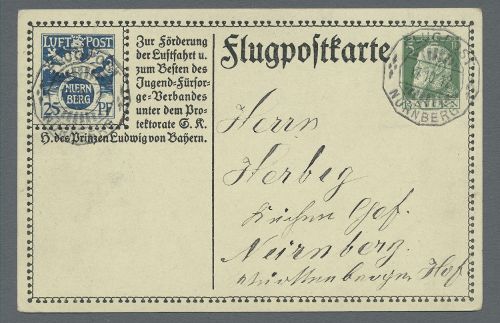 LUFT POST
NUERN
BERG
25 Pf
Zur Förderung
der Luftfahrt u.
zum Besten des
Jugend-Fürsor-
ge-Verbandes
unter dem Pro-
tektorate S. K.
H. des Prinzen Ludwig von Bayern.
Flugpostkarte
FLUG
NÜRNBERG
5
BAYERN
Herrn
Herbig
Küchen Gef.
Nürnberg.
Württemberger Hof